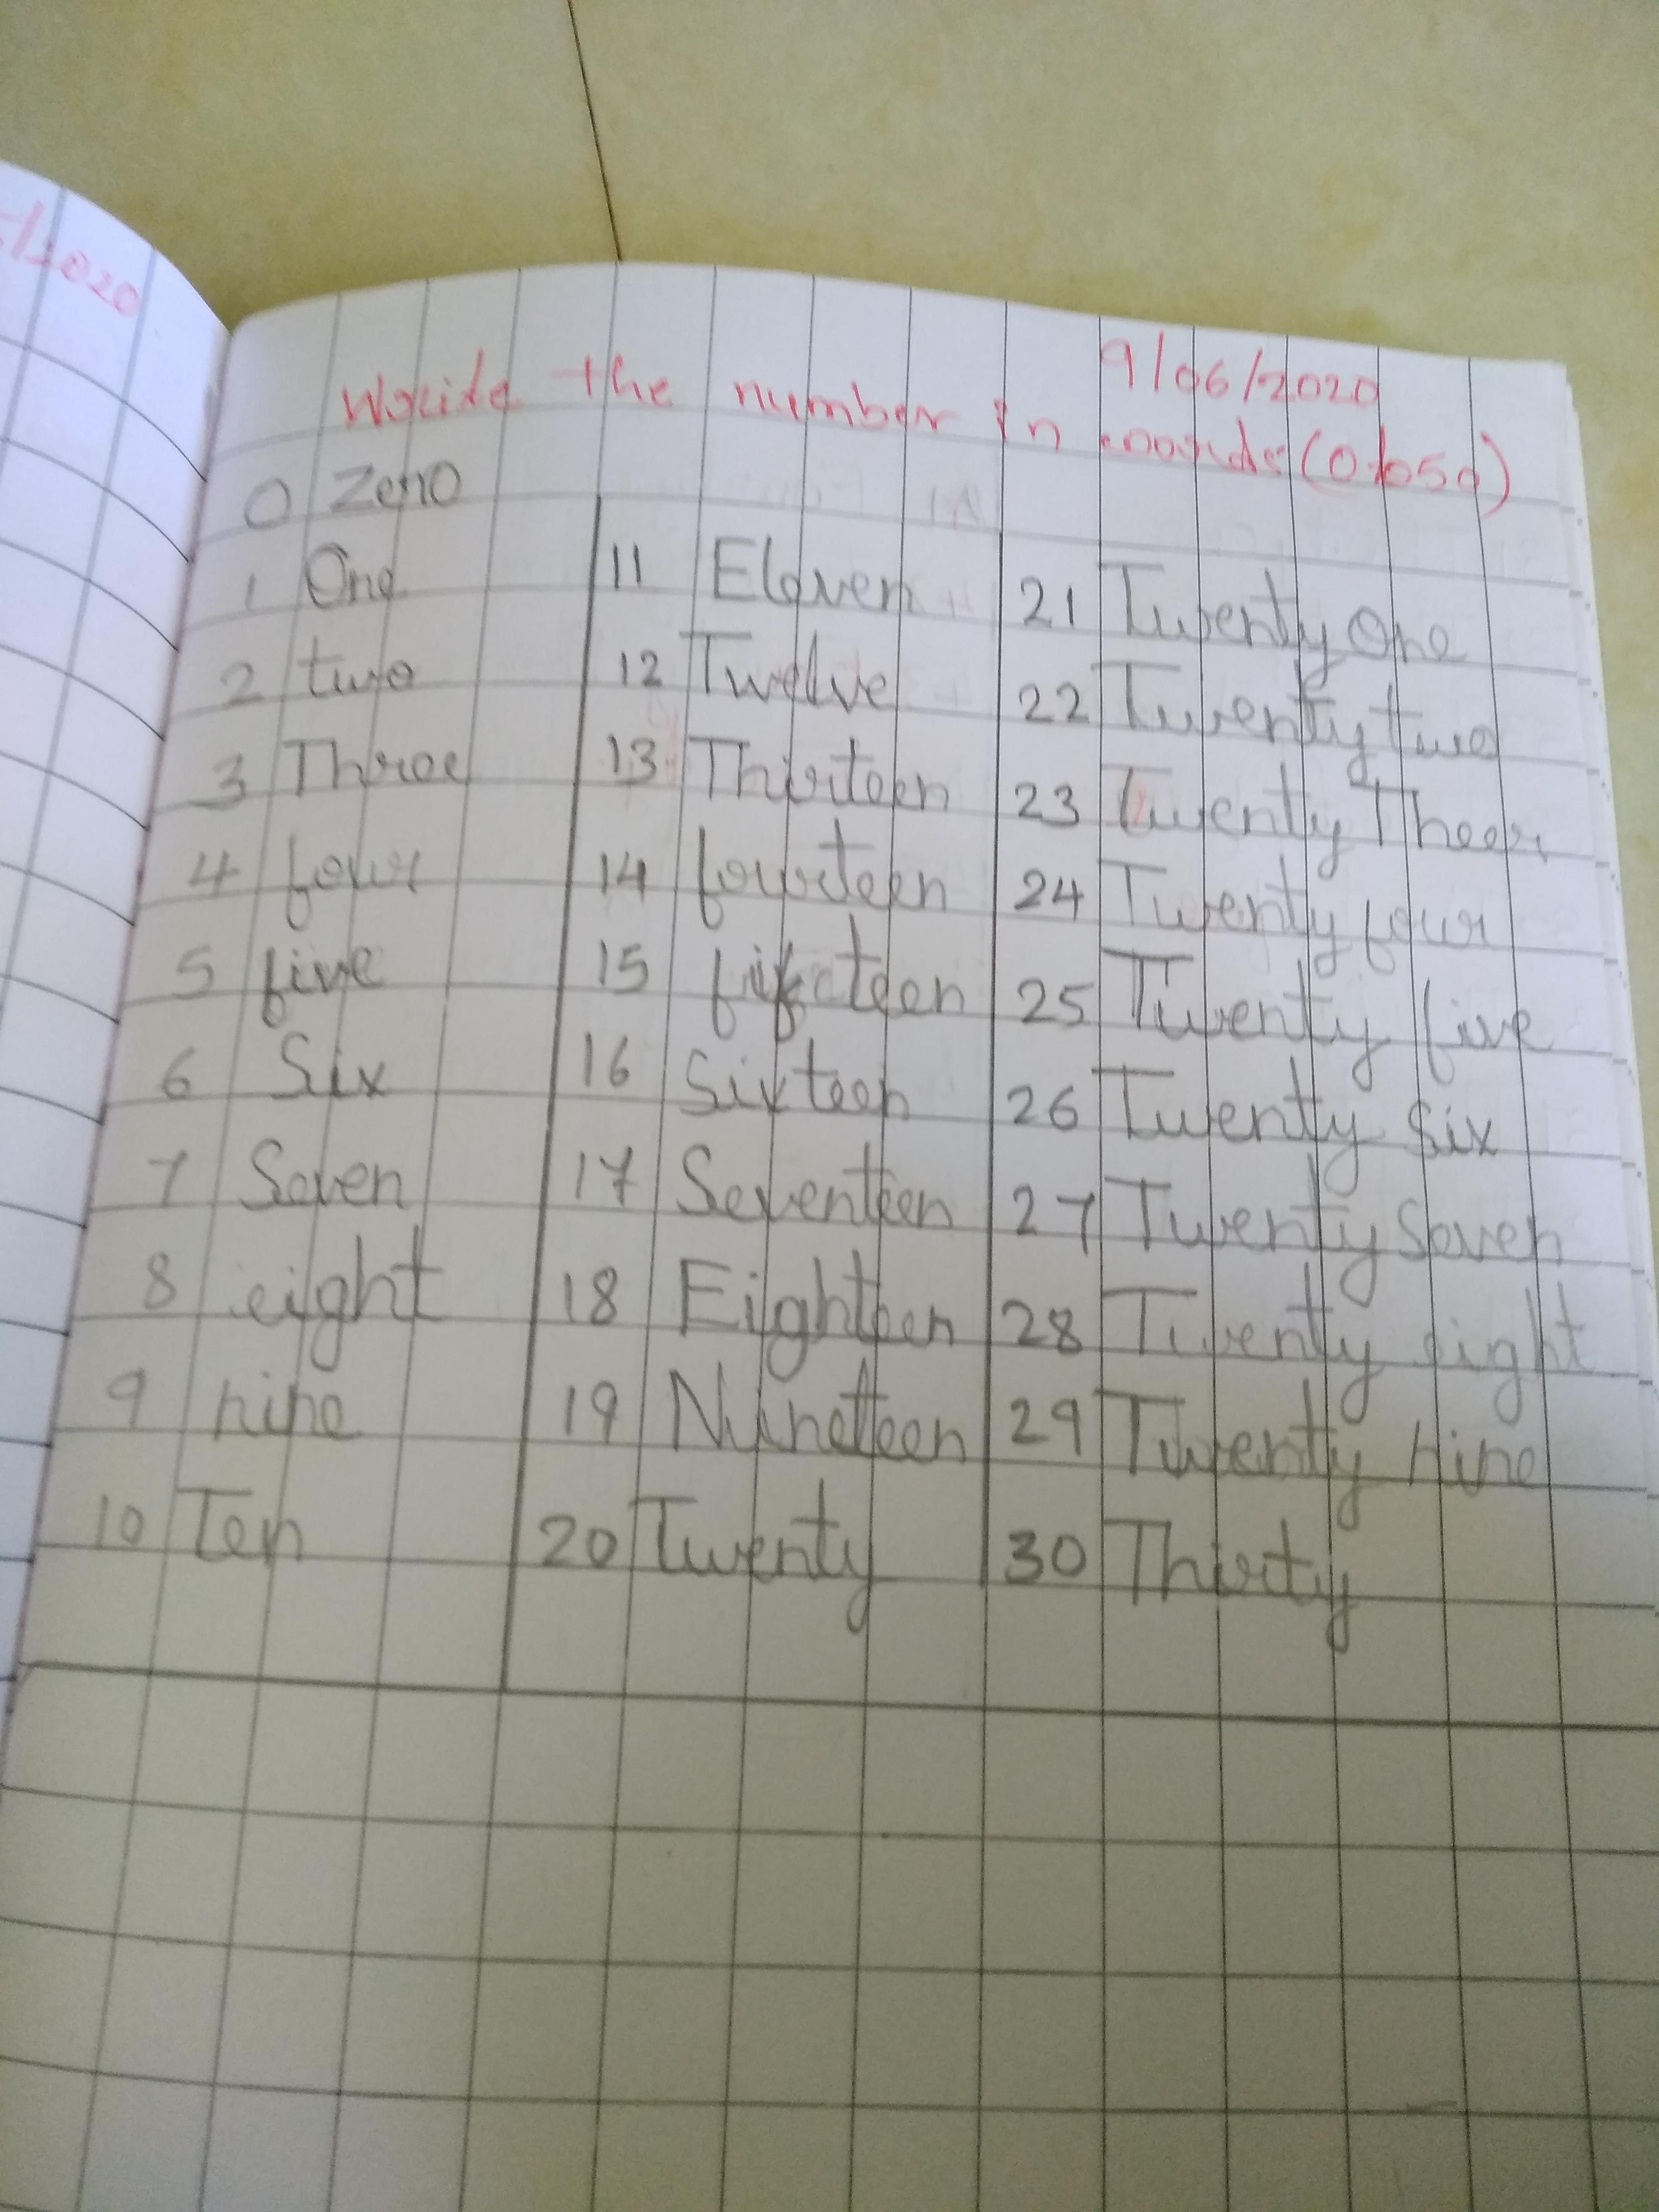 -/2020
9/06/2020
Write the number in words (0 to 50)
0 Zero
1 One 11 Eleven 21 Twenty One
2 two 12 Twelve 22 Twenty two
3 Three 13 Thirteen 23 Twenty Theer
4 four 14 fourteen 24 Twenty four
5 five 15 fifteen 25 Twenty five
6 Six 16 Sixteen 26 Twenty Six
7 Seven 17 Seventeen 27 Twenty Seven
8 eight 18 Eighteen 28 Twenty eight
9 nine 19 Nineteen 29 Twenty nine
10 Ten 20 Twenty 30 Thirty